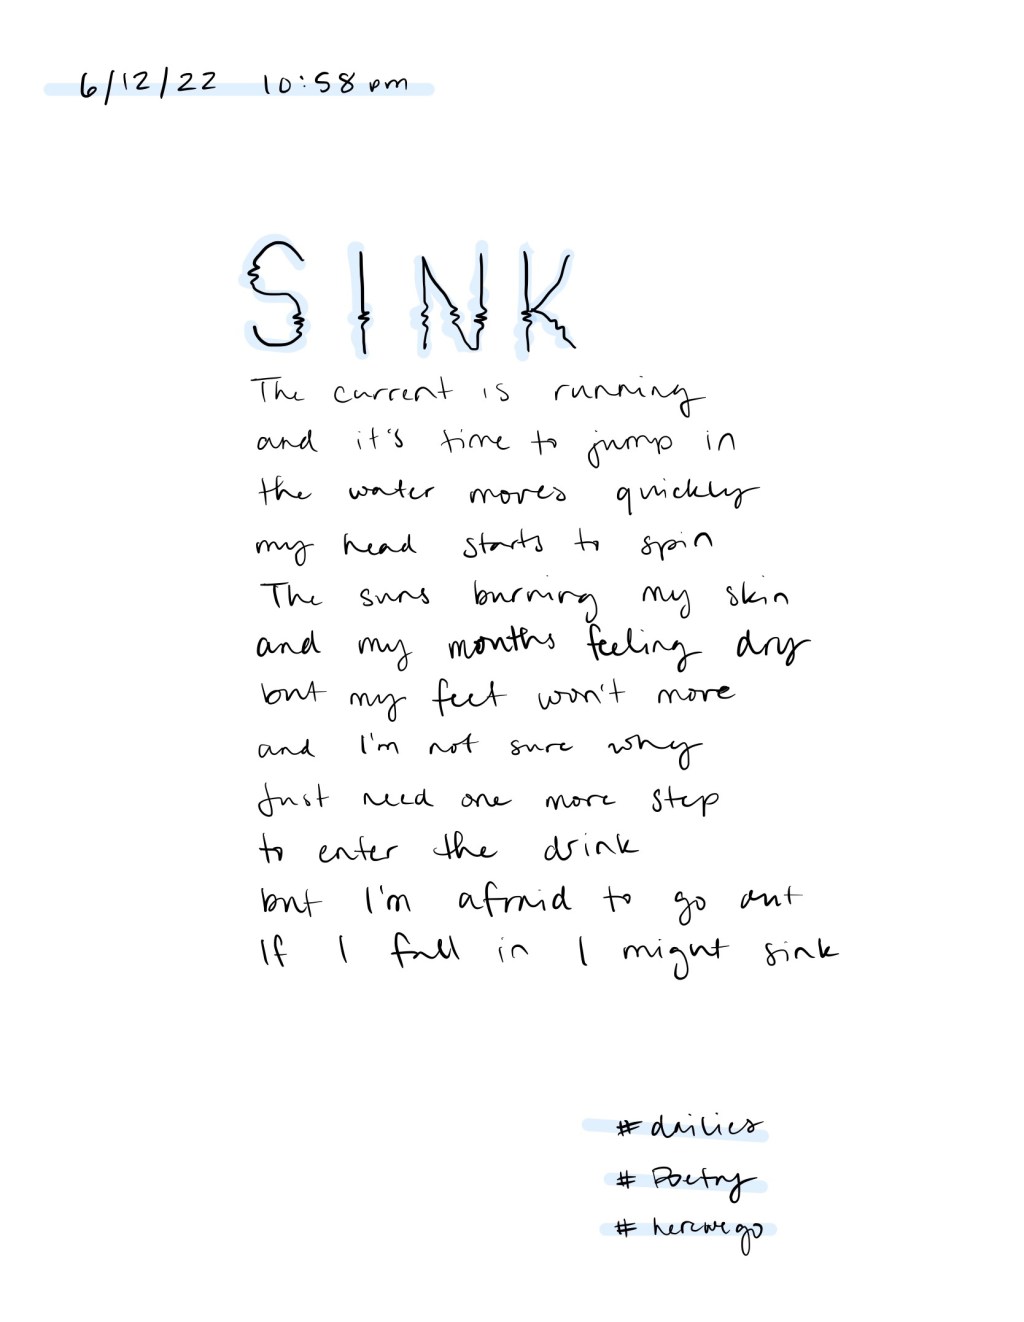 6/12/22 10:58 pm
SINK
The current is running
and it's time to jump in
the water moves quickly
my head starts to spin
The suns burning my skin
and my months feeling dry
but my feet won't move
and I'm not sure why
Just need one more step
to enter the drink
but I'm afraid to go out
If I fall in I might sink
#dailies
#Poetry
#herewego